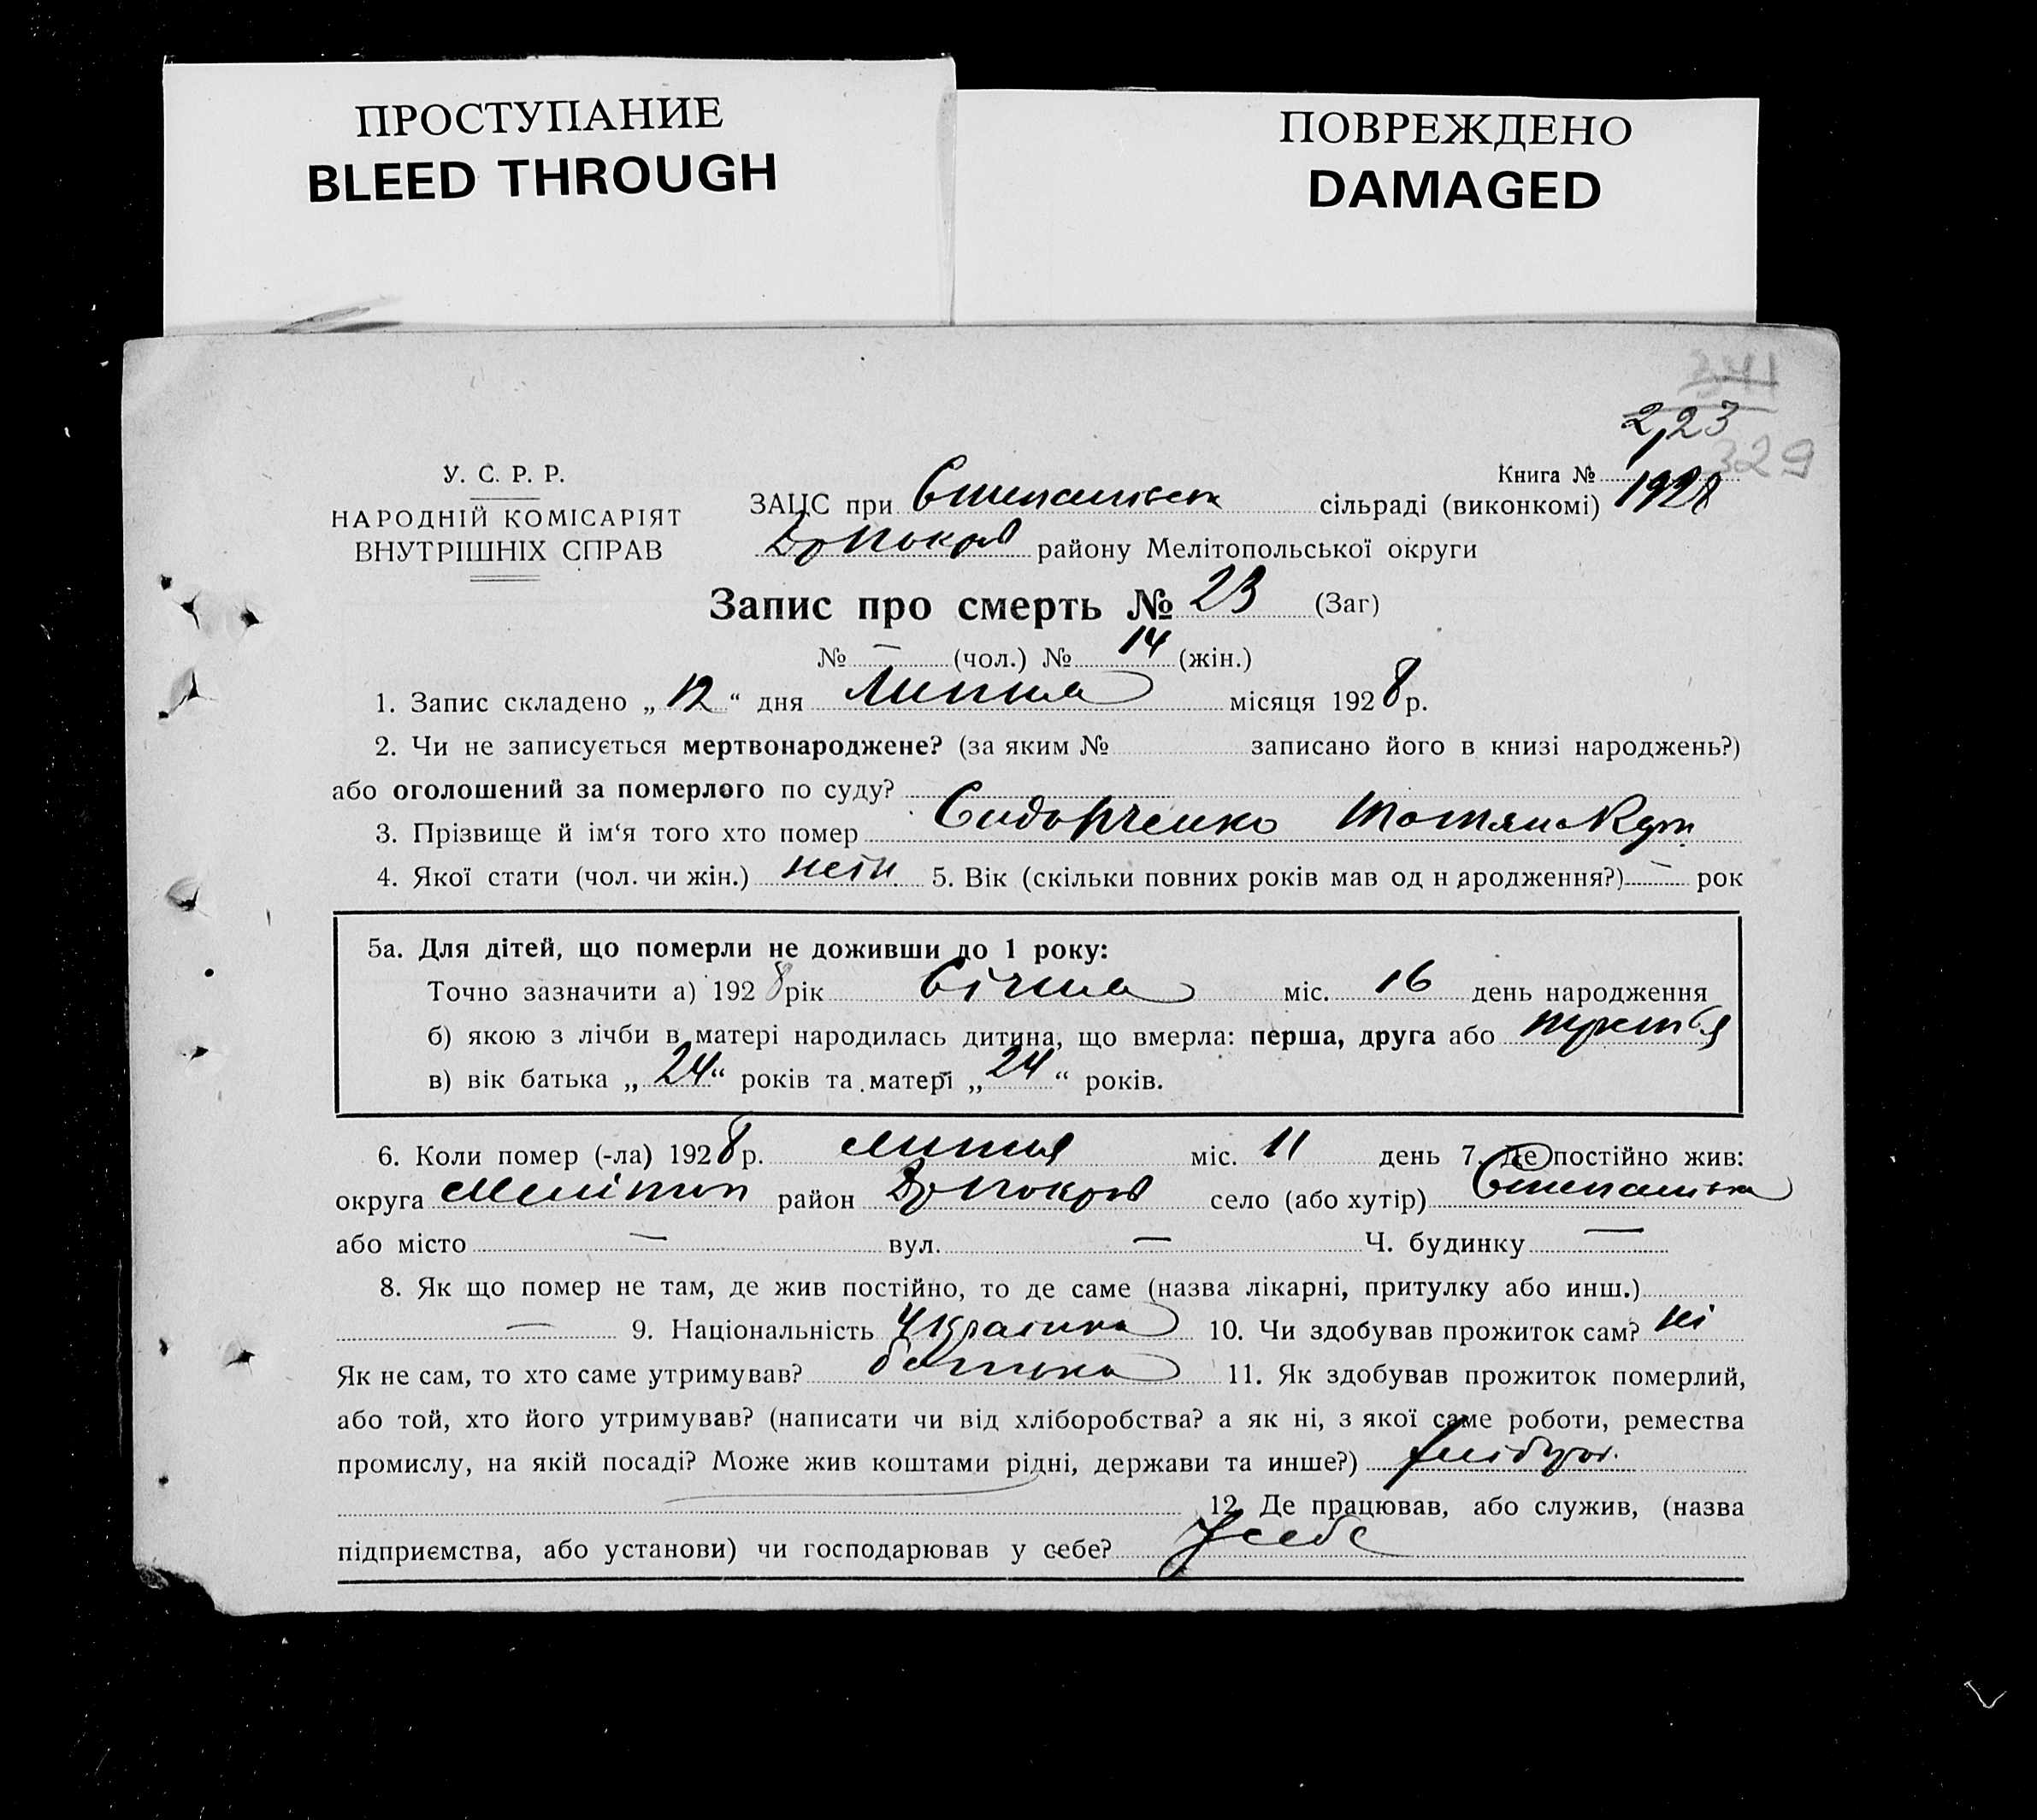 ПРОСТУПАНИЕ
BLEED THROUGH
ПОВРЕЖДЕНО
DAMAGED
341
223
329
У. С. Р. Р.
НАРОДНІЙ КОМІСАРІЯТ
ВНУТРІШНІХ СПРАВ
Книга № 1928
ЗАЦС при сільраді (виконкомі)
району Мелітопольської округи
Запис про смерть № 23 (Заг)
№ — (чол.) № 14 (жін.)
1. Запис складено „ 12 “ дня Липня місяця 1928 р.
2. Чи не записується мертвонароджене? (за яким № записано його в книзі народжень?)
або оголошений за померлого по суду?
3. Прізвище й ім‘я того хто помер Сидорченко Татяна
4. Якої стати (чол. чи жін.) 5. Вік (скільки повних років мав од н ародження?) — рок
5а. Для дітей, що померли не доживши до 1 року:
Точно зазначити а) 1928 рік Січня міс. 16 день народження
б) якою з лічби в матері народилась дитина, що вмерла: перша, друга або третья
в) вік батька „ 24 “ років та матері „ 24 “ років.
6. Коли помер (-ла) 1928 р. липня міс. 11 день 7. Де постійно жив:
округа Мелітоп район село (або хутір) Степанівка
або місто — вул. — Ч. будинку —
8. Як що помер не там, де жив постійно, то де саме (назва лікарні, притулку або инш.)
— 9. Національність Украінка 10. Чи здобував прожиток сам? ні
Як не сам, то хто саме утримував? батько 11. Як здобував прожиток померлий,
або той, хто його утримував? (написати чи від хліборобства? а як ні, з якої саме роботи, ремества
промислу, на якій посаді? Може жив коштами рідні, держави та инше?) хлібороб.
12. Де працював, або служив, (назва
підприємства, або установи) чи господарював у себе? У себе